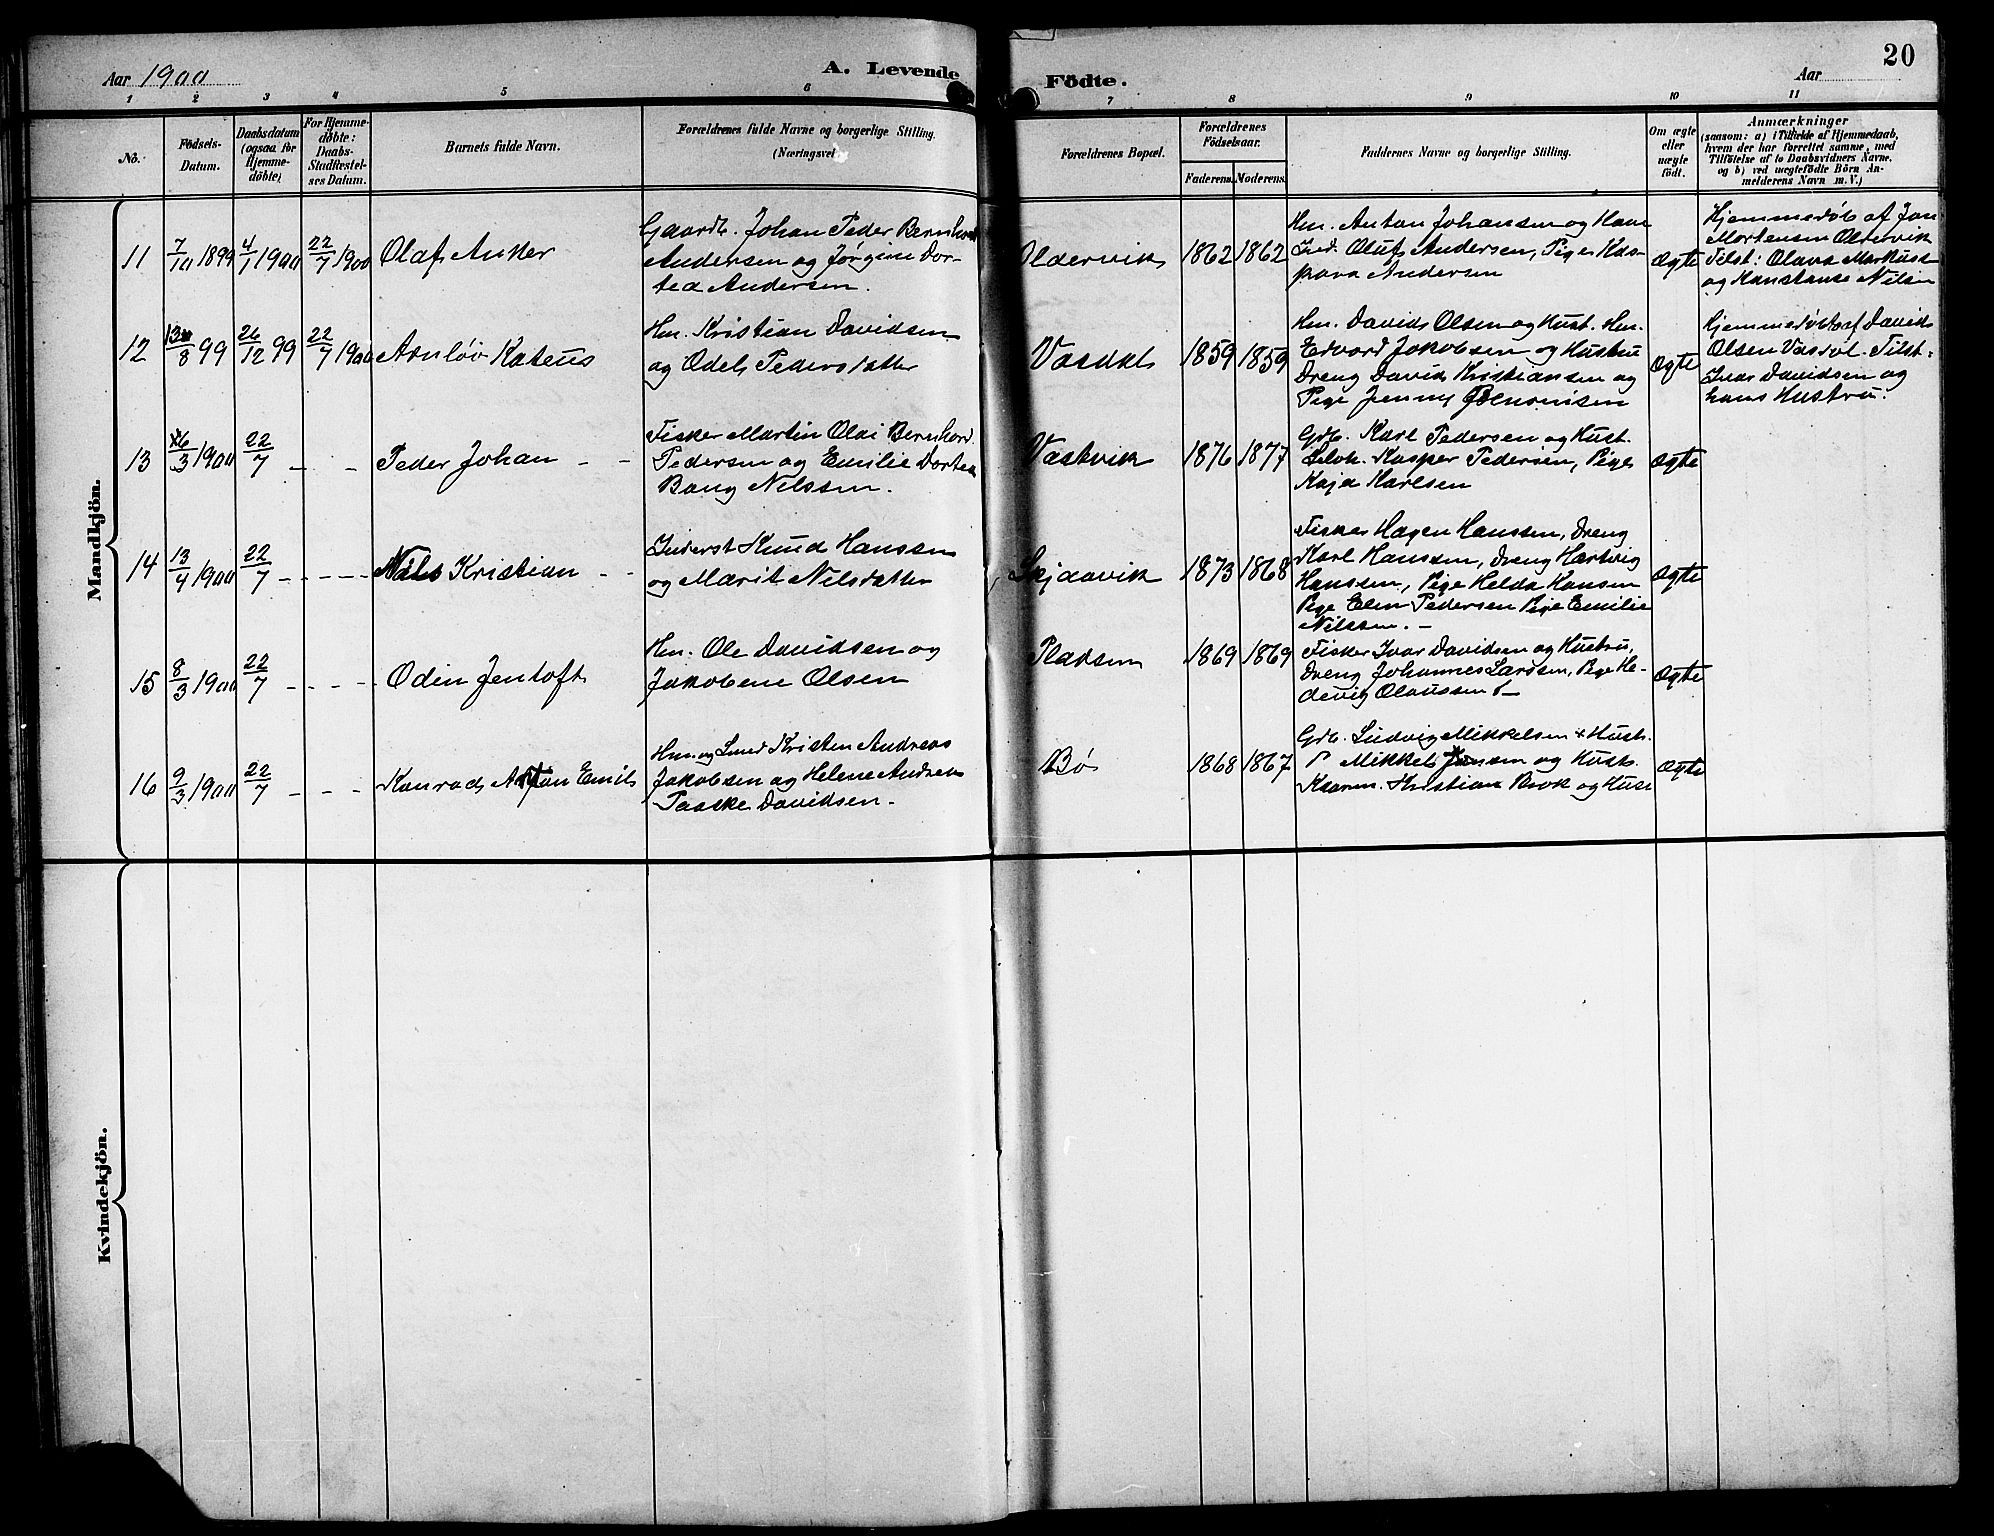 20
Aar 1900
A. Levende
Födte.
Aar
1 2 3 4 5 6 7 8 9 10 11
No.
Födsels-
Datum.
Daabsdatum
(ogsaa for
Hjemme-
döbte)
For Hjemme-
döbte:
Daabs-
Stadfæstel-
ses Datum.
Barnets fulde Navn.
Forældrenes fulde Navne og borgerlige Stilling.
(Næringsvei
Forældrenes Bopæl.
Forældrenes
Födselsaar.
Faderens. Moderens.
Faddernes Navne og borgerlige Stilling.
Om ægte
eller
uægte
födt.
Anmærkninger
(saasom: a) i Tilfælde af Hjemmedaab,
hvem der har forrettet samme, med
Tilföielse af to Daabsvidners Navne,
og b) ved uægtefödte Börn An-
melderens Navn m. V.)
Mandkjön.
11 7/10 1899 4/1 1900 22/7 1900 Olaf Anker
Gaardb. Johan Peder Bernhard
Andersen og Jørgine Dor-
tea Andersen.
Oldervik 1862 1862
Hm. Anton Johansen og Kone
Ind. Oluf Andersen, Pige Kas-
para Andersen
Ægte
Hjemmedøb af Jon
Mortensen Oldervik
Tilst: Olava Markuss
og Konstanse Nilsen
12 13/8 99 26/12 99 22/7 1900 Arnløv Kateus
Hm. Kristian Davidsen
og Odel Pedersdatter
Vasdal 1859 1859
Hm. David Olsen og Hust. Hm.
Edvard Jakobsen og Hustru
Dreng David Kristiansen og
Pige Jenny
Ægte
Hjemmedøbt af David
Olsen Vasdal. Tilst.
Ivar Davidsen og
hans Hustru.
13 /3 1900 22/7 - - Peder Johan - -
Fisker Martin Olai Bernhard
Pedersen og Emilie Dortea
Bang Nilssen.
Vastvik 1876 1877
Grb. Karl Pedersen og Hust.
Kasper Pedersen, Pige
Kaja Karlsen
Ægte
14 13/4 1900 22/7 - - - - Nils Kristian - -
Inderst Knud Hanssen
og Marit Nilsdatter
Skjaavik 1873 1868
Fisker Hagen Hanssen, Dreng
Karl Hanssen, Dreng Hartvig
Hanssen, Pige Helda Hansen
Pige Elen Pedersen Pige Emilie
Nilssen. -
Ægte
15 8/3 1900 22/7 - - - - Odin Jentoft
Hm. Ole Davidsen og
Jakobine Olsen
Pladsen 1869 1869
Fisker Ivar Davidsen og Hustru,
Dreng Johannes Larssen, Pige He-
devig Olaussen
Ægte
16 9/3 1900 22/7 - - - Konrad Anton Emil
Hm. og Smed Kristen Andreas
Jakobsen og Helene Andrea
Paaske Davidsen.
Bø 1868 1867
Grb. Ludvig Mikkelsen + Hust.
Mikkel Jensen og Hust.
Kaarm. Kristian Brok og Hust
Ægte
Kvindekjön.